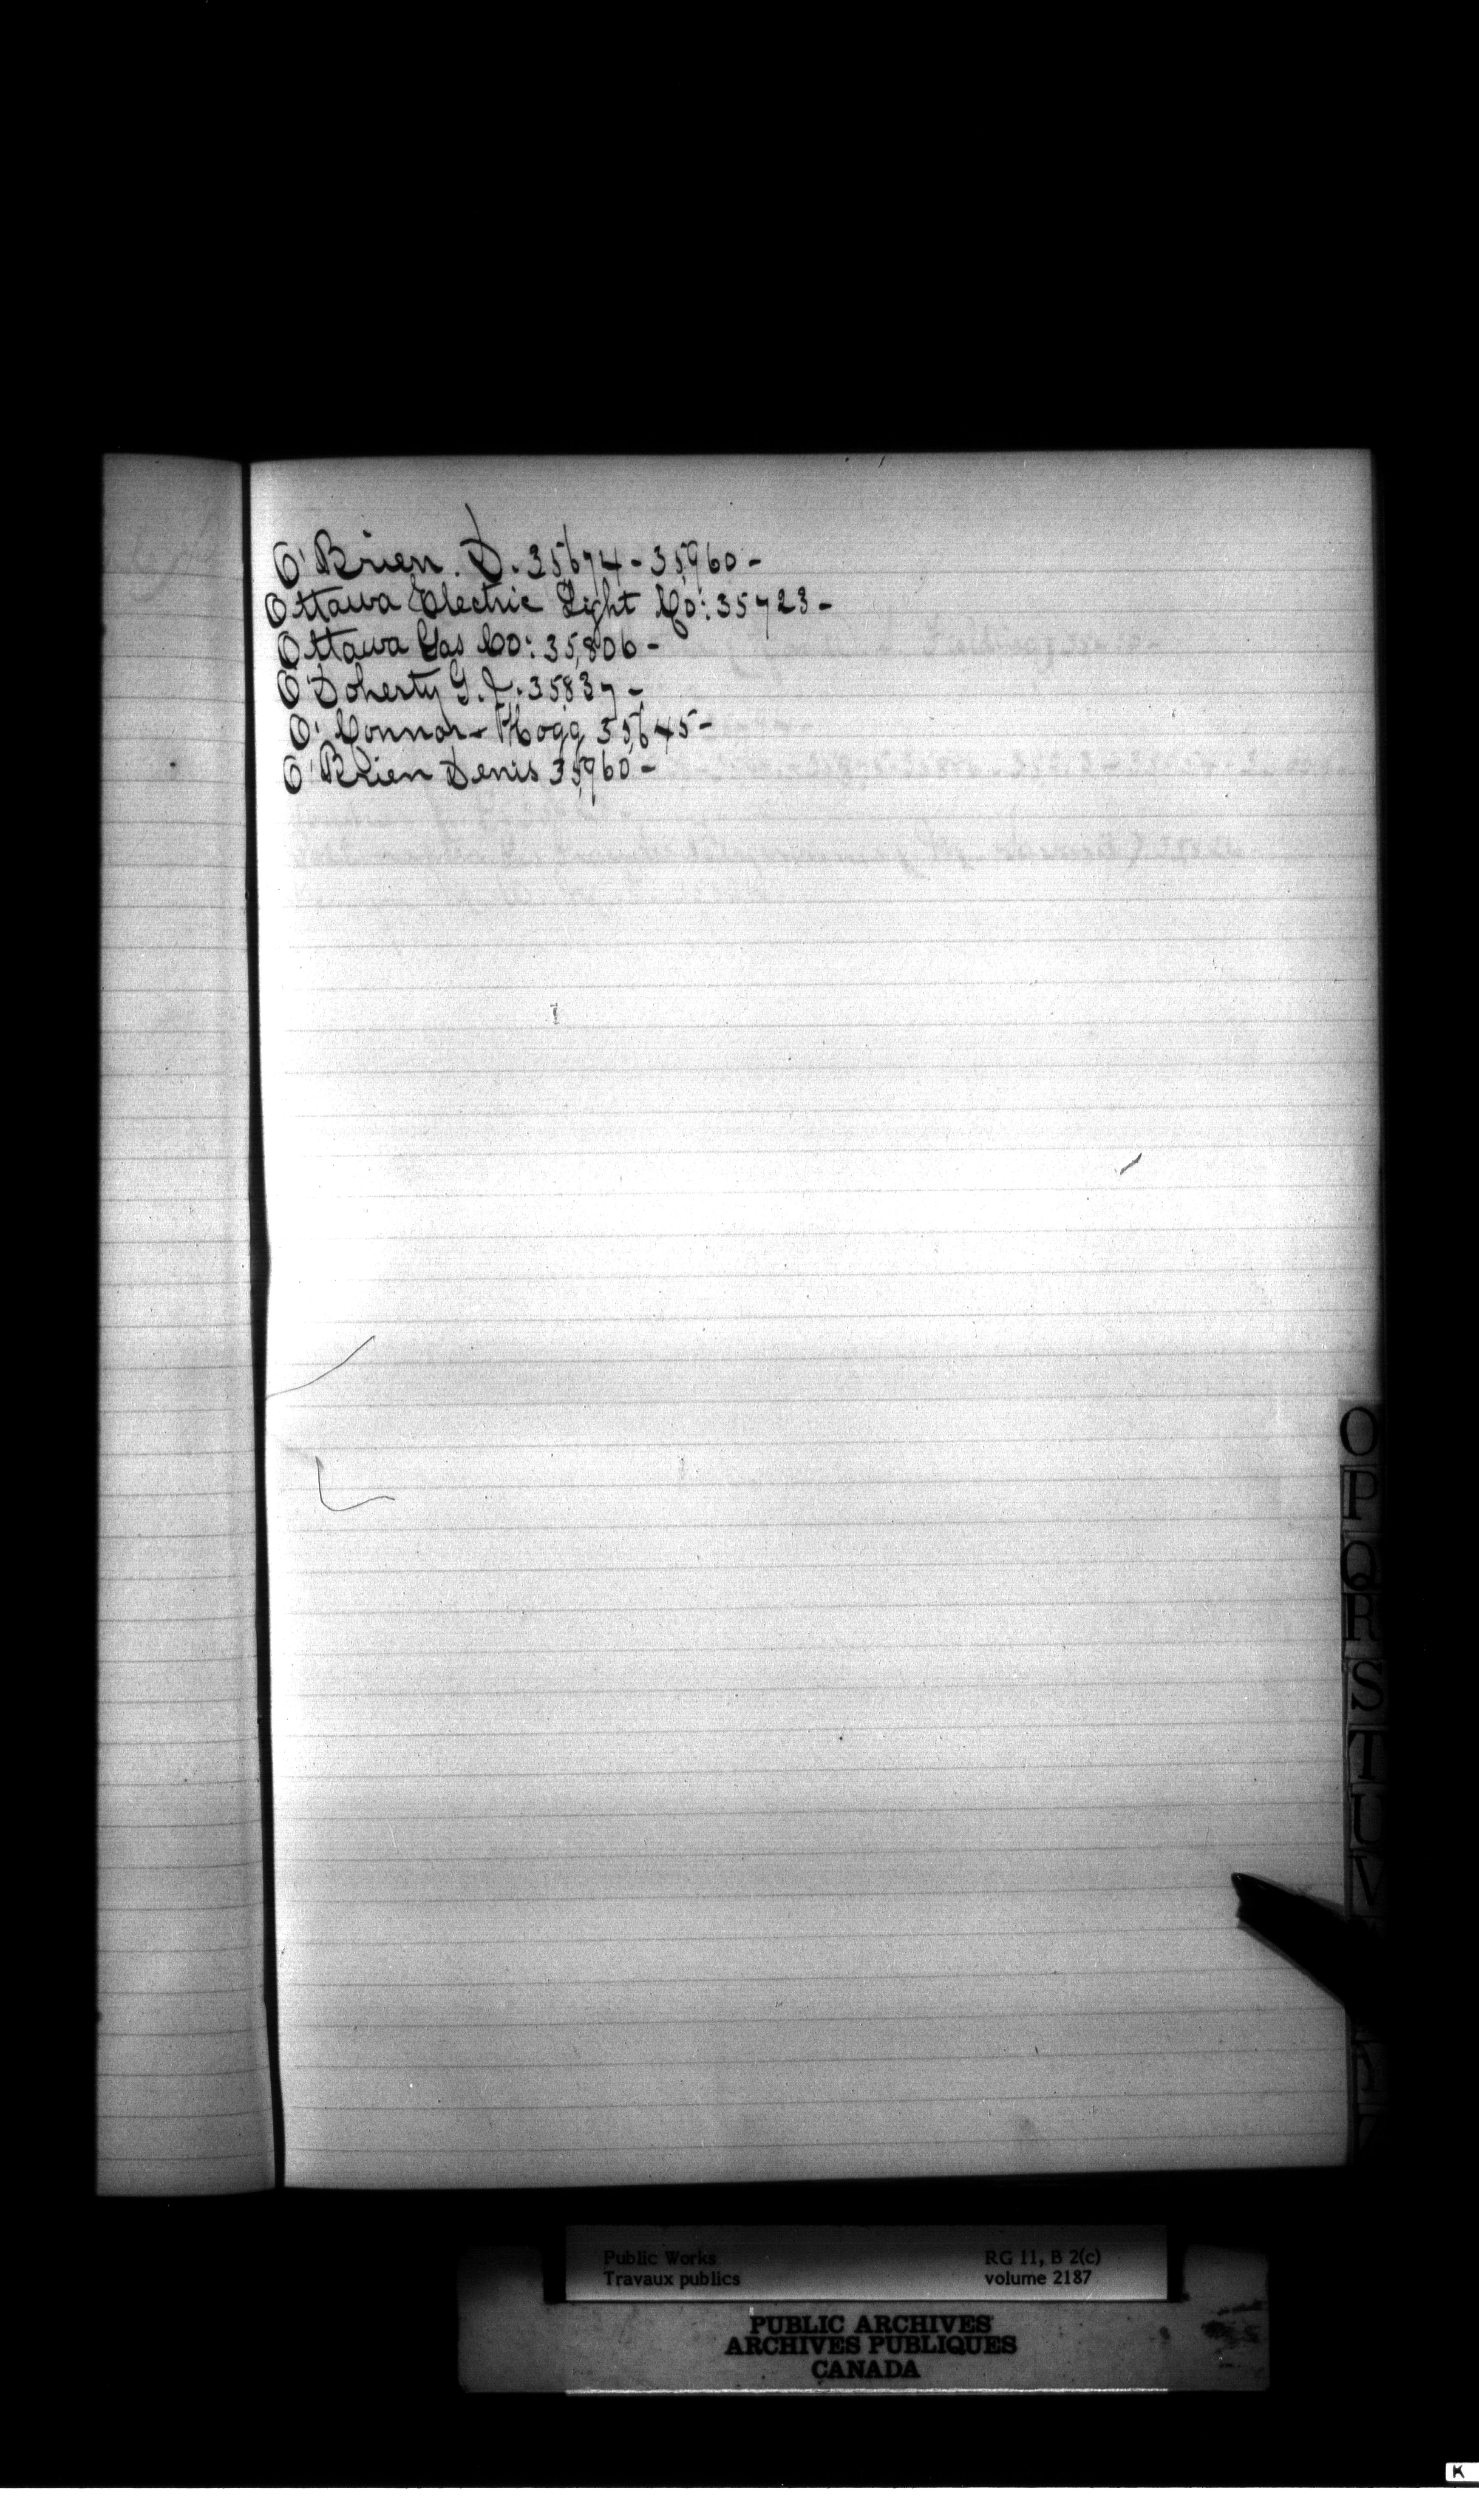 O'Brien. D. 35674 - 35960 -
Ottawa Electric Light Co: 35723 -
Ottawa Gas Co: 35,806 -
O'Doherty G. J. 35837 -
O'Connor - Hogg 35645 -
O'Brien Denis 35960 -
O
P
Q
R
S
T
U
V
Public Works
Travaux publics
RG 11, B 2(c)
volume 2187
PUBLIC ARCHIVES
ARCHIVES PUBLIQUES
CANADA
K